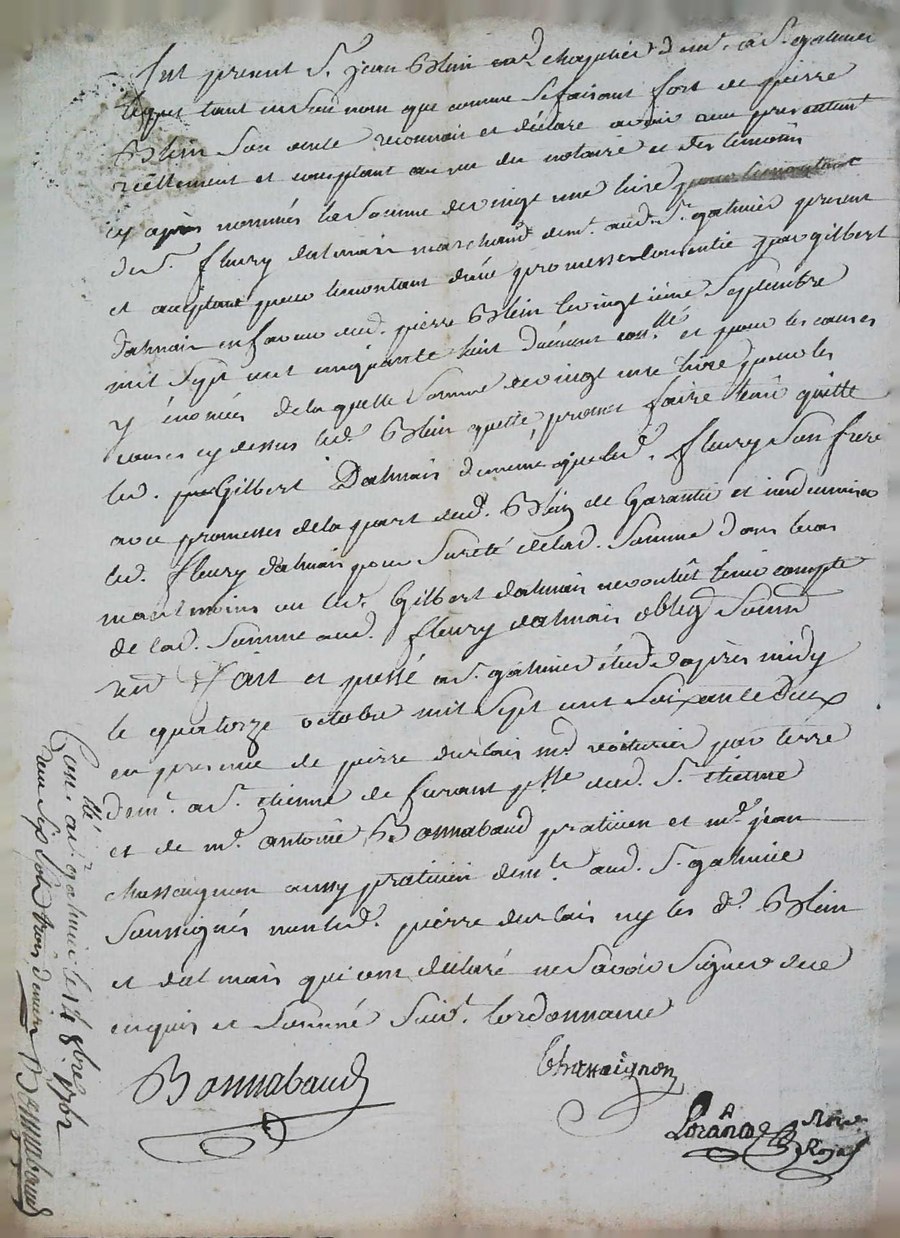 fut present Sr. jean Blein md. chapelier demt. a St. galmier
lequel tant en son nom que comme se faisant fort de pierre
Blein son oncle reconnait et déclare avoir eu presentement
réellement et comptant au vu du notaire et des temoins
cy après nommés la somme de vingt une livre
de Sr. fleury dalmais marchand demt. aud. St. galmier present
et acceptant pour le montant d'une promesse consentie par gilbert
dalmais en faveur dud. pierre Blein le vingtième Septembre
mil Sept cent cinquante huit duement conllé. et pour les causes
y énoncées de laquelle Somme de vingt une livre pour les
causes cy dessus led. Blein quitte, promet faire tenir quitte
led. Gilbert Dalmais de meme que led. fleury Son frere
avec promesses de la part dud. Blein de Garantir et indemniser
led. fleury dalmais pour Sureté de lad. Somme dans le cas
neantmoins ou led. Gilbert dalmais ne voulût tenir compte
de lad. Somme aud. fleury dalmais oblig. Soumis.
ren. fait et passé a St. galmier étude après midy
le quatorze octobre mil Sept cent Soixante deux
en presence de pierre durbais md voiturier par terre
demt. a St. Etienne de furant psse dud. St. Etienne
et de me. antoine Bonnabaud praticien et me. jean
chassaignon aussy praticien demts. aud. St. galmier
Soussignés non led. pierre durbais ny les ds. Blein
et dalmais qui ont déclaré ne Savoir Signer de ce
enquis et Sommé Suivt. lordonnance
Bonnabaud
Chassaignon
Notre
Royal
Conllé. a St. galmier le 14 8bre 1762
Bonnabaud